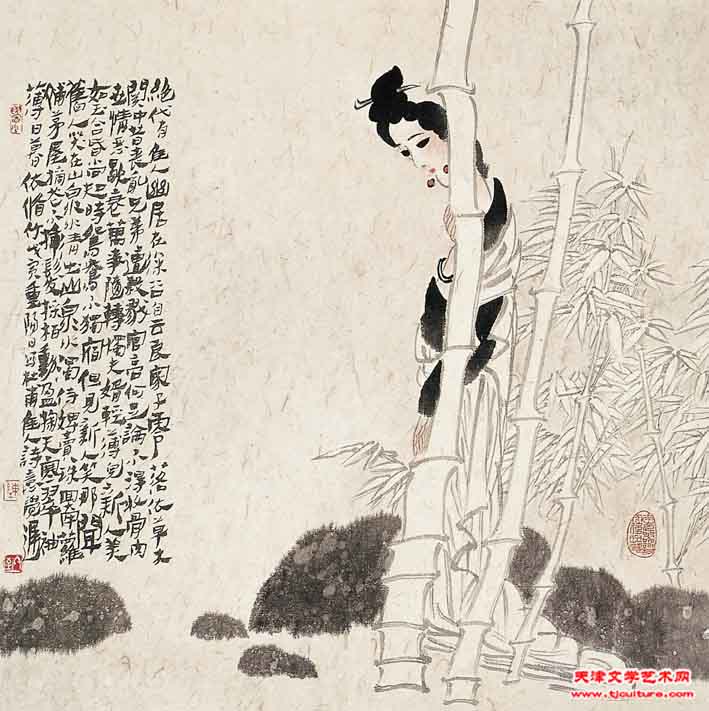 絕代有佳人幽居在深谷自云良家子零落依草木
關中昔喪亂兄弟遭殺戮官高何足論不得收骨肉
世情惡歇衰萬事隨轉燭夫婿輕薄兒新人美
如玉合昏尚知時鴛鴦不獨宿但見新人笑那聞
舊人哭在山泉水清出山泉水濁侍婢賣珠回牽蘿
補茅屋摘花不插髮採柏動盈掬天寒翠袖
薄日暮依脩竹亥重陽日寫杜甫佳人詩意
天津文学艺术网
www.tjculture.com